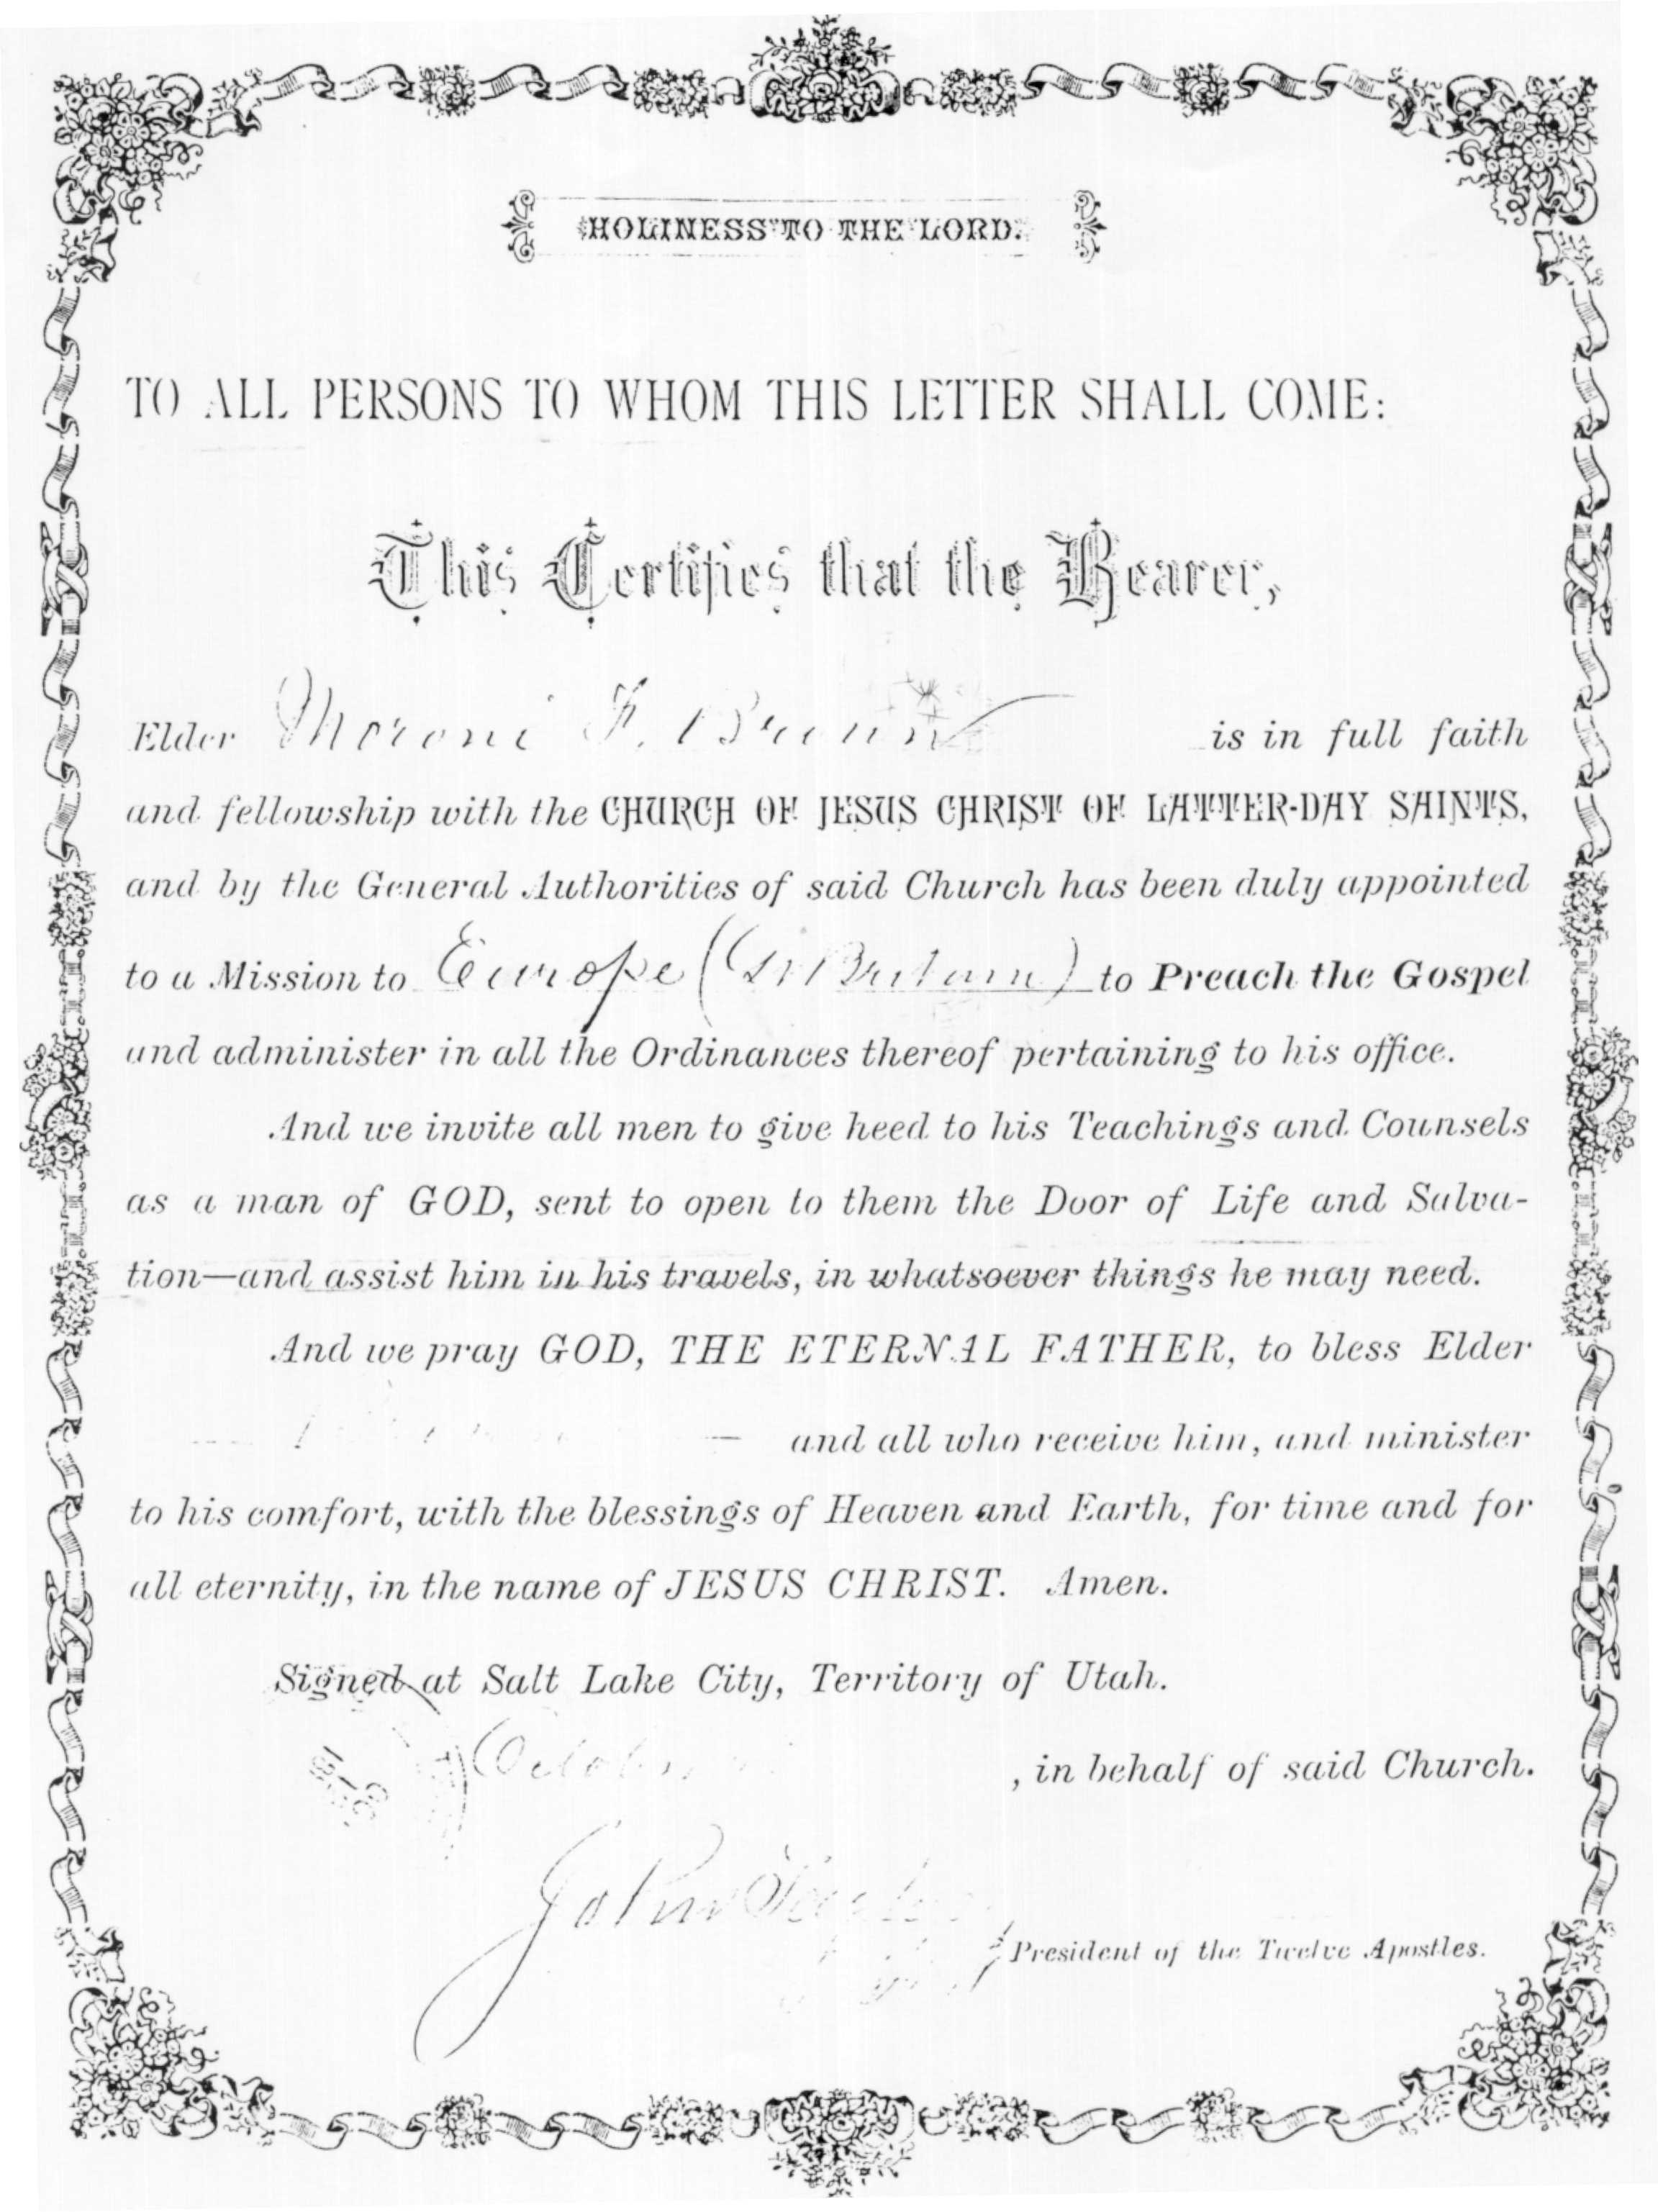 HOLINESS TO THE LORD.
TO ALL PERSONS TO WHOM THIS LETTER SHALL COME:
This Certifies that the Bearer,
Elder Moroni F. Brown is in full faith
and fellowship with the CHURCH OF JESUS CHRIST OF LATTER-DAY SAINTS,
and by the General Authorities of said Church has been duly appointed
to a Mission to Europe (Gr Britain) to Preach the Gospel
and administer in all the Ordinances thereof pertaining to his office.
And we invite all men to give heed to his Teachings and Counsels
as a man of GOD, sent to open to them the Door of Life and Salva-
tion—and assist him in his travels, in whatsoever things he may need.
And we pray GOD, THE ETERNAL FATHER, to bless Elder
and all who receive him, and minister
to his comfort, with the blessings of Heaven and Earth, for time and for
all eternity, in the name of JESUS CHRIST. Amen.
Signed at Salt Lake City, Territory of Utah.
October , in behalf of said Church.
John Taylor
President of the Twelve Apostles.